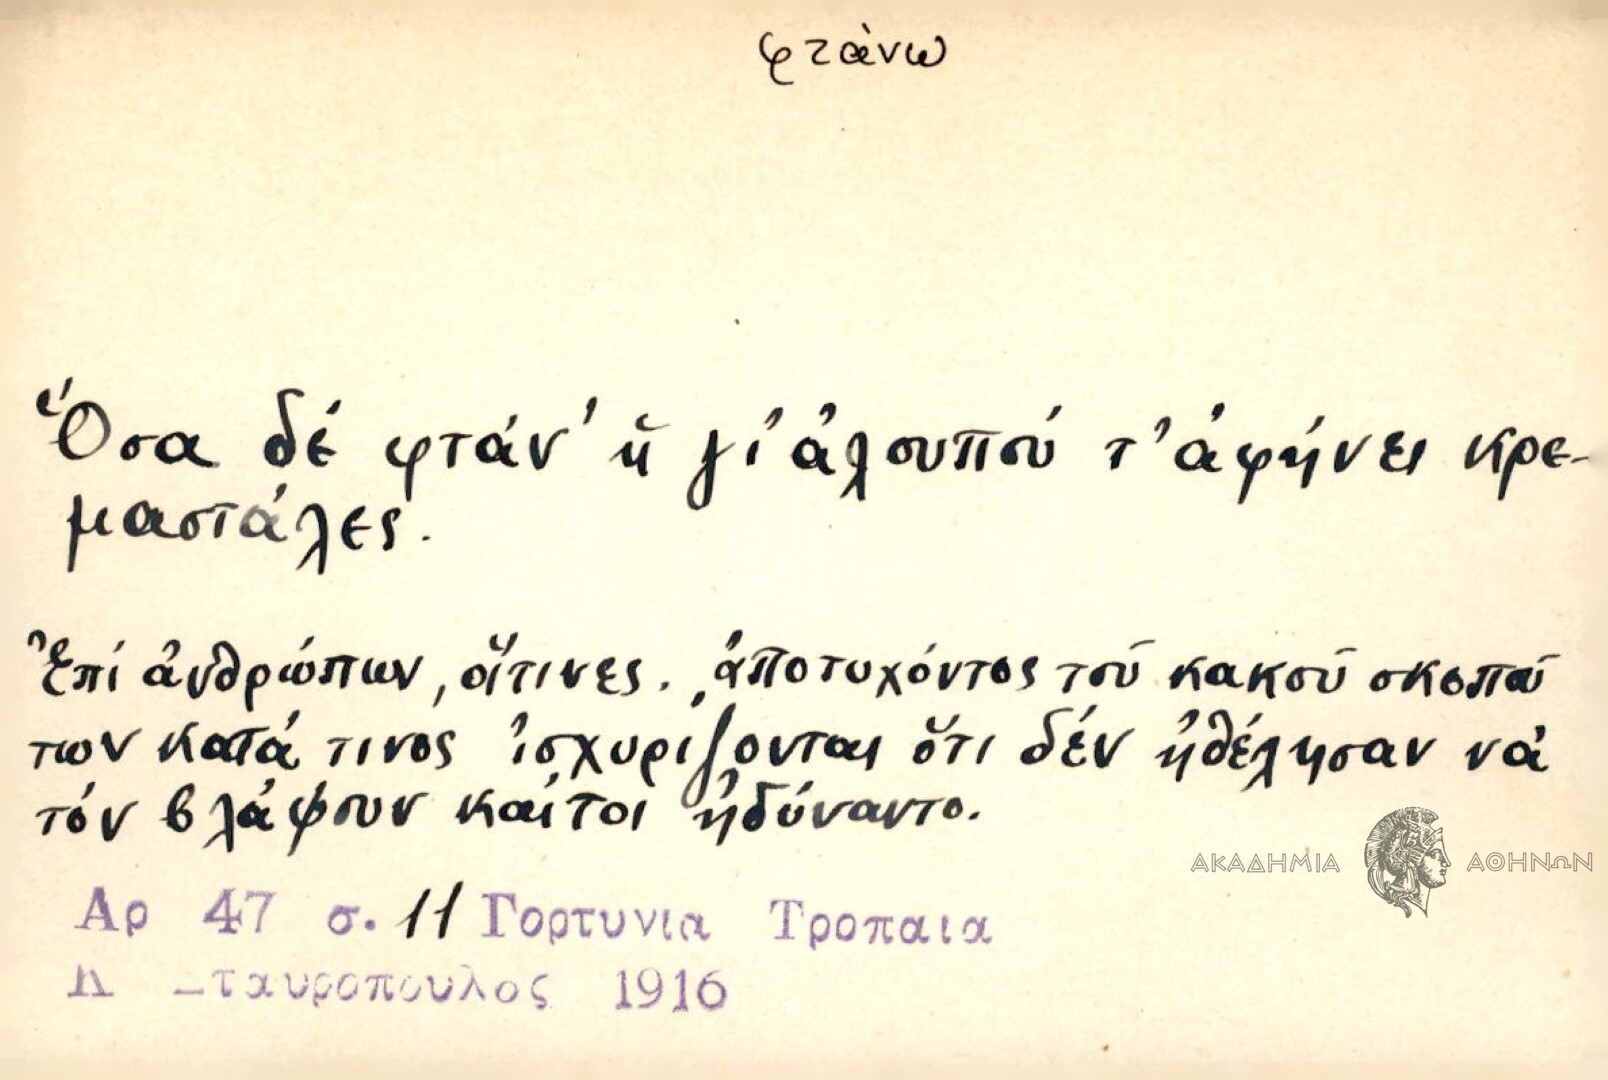 φτάνω
Ὅσα δέ φτάν' ἡ γι' ἀλουπού τ' ἀφήνει κρε-
μαστάλες.
Ἐπί ἀνθρώπων, οἵτινες, ἀποτυχόντος τοῦ κακοῦ σκοποῦ
των κατά τινος ἰσχυρίζονται ὅτι δέν ἠθέλησαν νά
τόν βλάψουν καίτοι ἠδύναντο.
ΑΚΑΔΗΜΙΑ ΑΘΗΝΩΝ
Αρ 47 σ. 11 Γορτυνια Τροπαια
Σταυροπουλος 1916